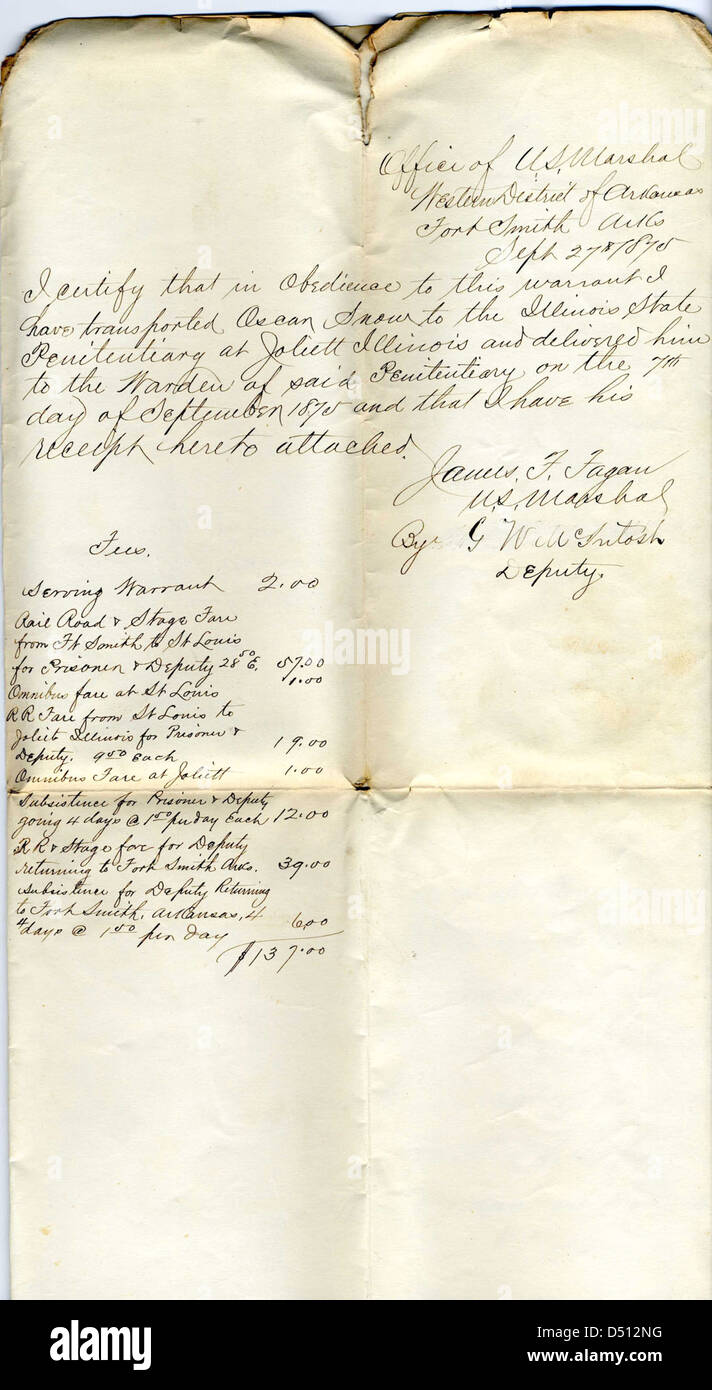 Office of U.S. Marshal
Western District of Arkansas
Fort Smith Arks
Sept 27th 1875
I certify that in obedience to this warrant I
have transported Oscar Snow to the Illinois State
Penitentiary at Joliett Illinois and delivered him
to the Warden of said Penitentiary on the 7th
day of September 1875 and that I have his
receipt hereto attached.
James. F. Fagan
U.S. Marshal
By G W McIntosh
Deputy.
Fees.
Serving Warrant 2.00
Rail Road & Stage Fare
from Ft Smith to St Louis
for Prisoner & Deputy 28 50 E. 57.00
Omnibus fare at St Louis 1.00
RR Fare from St Louis to
Joliet Illinois for Prisoner &
Deputy. 9 50 Each 19.00
Omnibus Fare at Joliett 1.00
Subsistence for Prisoner & Deputy
going 4 days @ 1 50 per day Each 12.00
RR & Stage fare for Deputy
returning to Fort Smith Arks. 39.00
Subsistence for Deputy Returning
to Fort Smith, Arkansas, 4
4 days @ 1 50 per day 6.00
$137.00
alamy
alamy
alamy
alamy
alamy
alamy
Image ID: D512NG
www.alamy.com